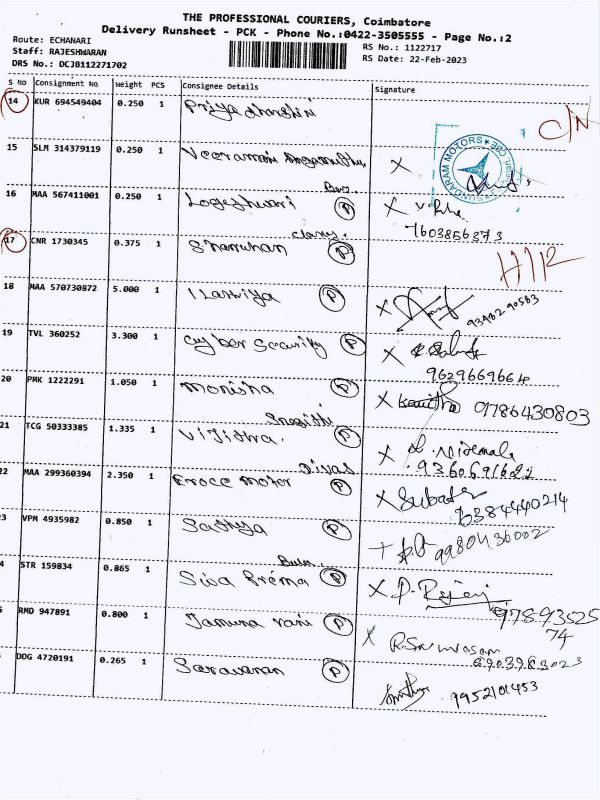 THE PROFESSIONAL COURIERS, Coimbatore
Delivery Runsheet - PCK - Phone No.:0422-3505555 - Page No.:2
Route: ECHANARI
RS No.: 1122717
Staff: RAJESHWARAN
RS Date: 22-Feb-2023
DRS No.: DCJB112271702
S No Consignment No Weight PCS Consignee Details Signature
14 KUR 694549404 0.250 1 Priya dharshini C/N
15 SLM 314379119 0.250 1 Veeramani X
SUNDARAM MOTORS
16 MAA 567411001 0.250 1 Logeshwari P X
7603856373
17 CNR 1730345 0.375 1 Shanuhan P
18 MAA 570730872 5.000 1 Ilakiya P X
93482 90583
19 TVL 360252 3.300 1 Cyber Security P X
9629669664
20 PMK 1222291 1.050 1 Monisha P X Kavitha 01786430803
21 TCG 50333385 1.335 1 Vijithra. P X
9360691622
22 MAA 299360394 2.350 1 Force Motor P X
6384440214
3 VPM 4935982 0.850 1 Sathya P 9980436002
4 STR 159834 0.865 1 Siva Prema P X P.
97893525
74
RMD 947891 0.800 1 Jamuna rani P X R. Srinivasan
DDG 4720191 0.265 1 Saravanan P
9952101453